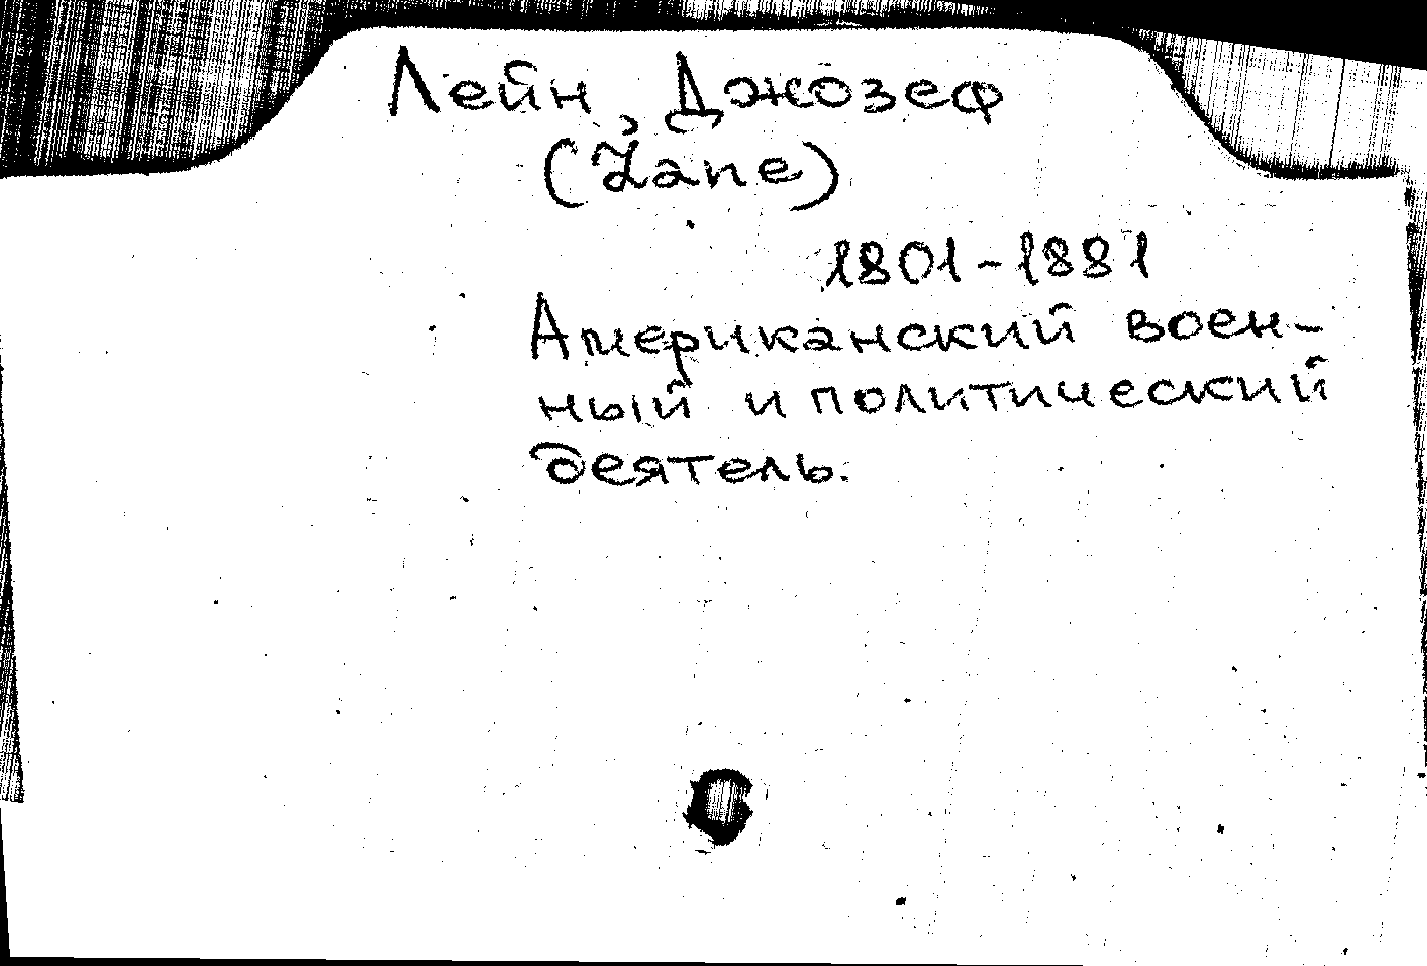 Лейн, Джозеф
(Lane)
1801-1881
Американский воен-
ный и политический
деятель.